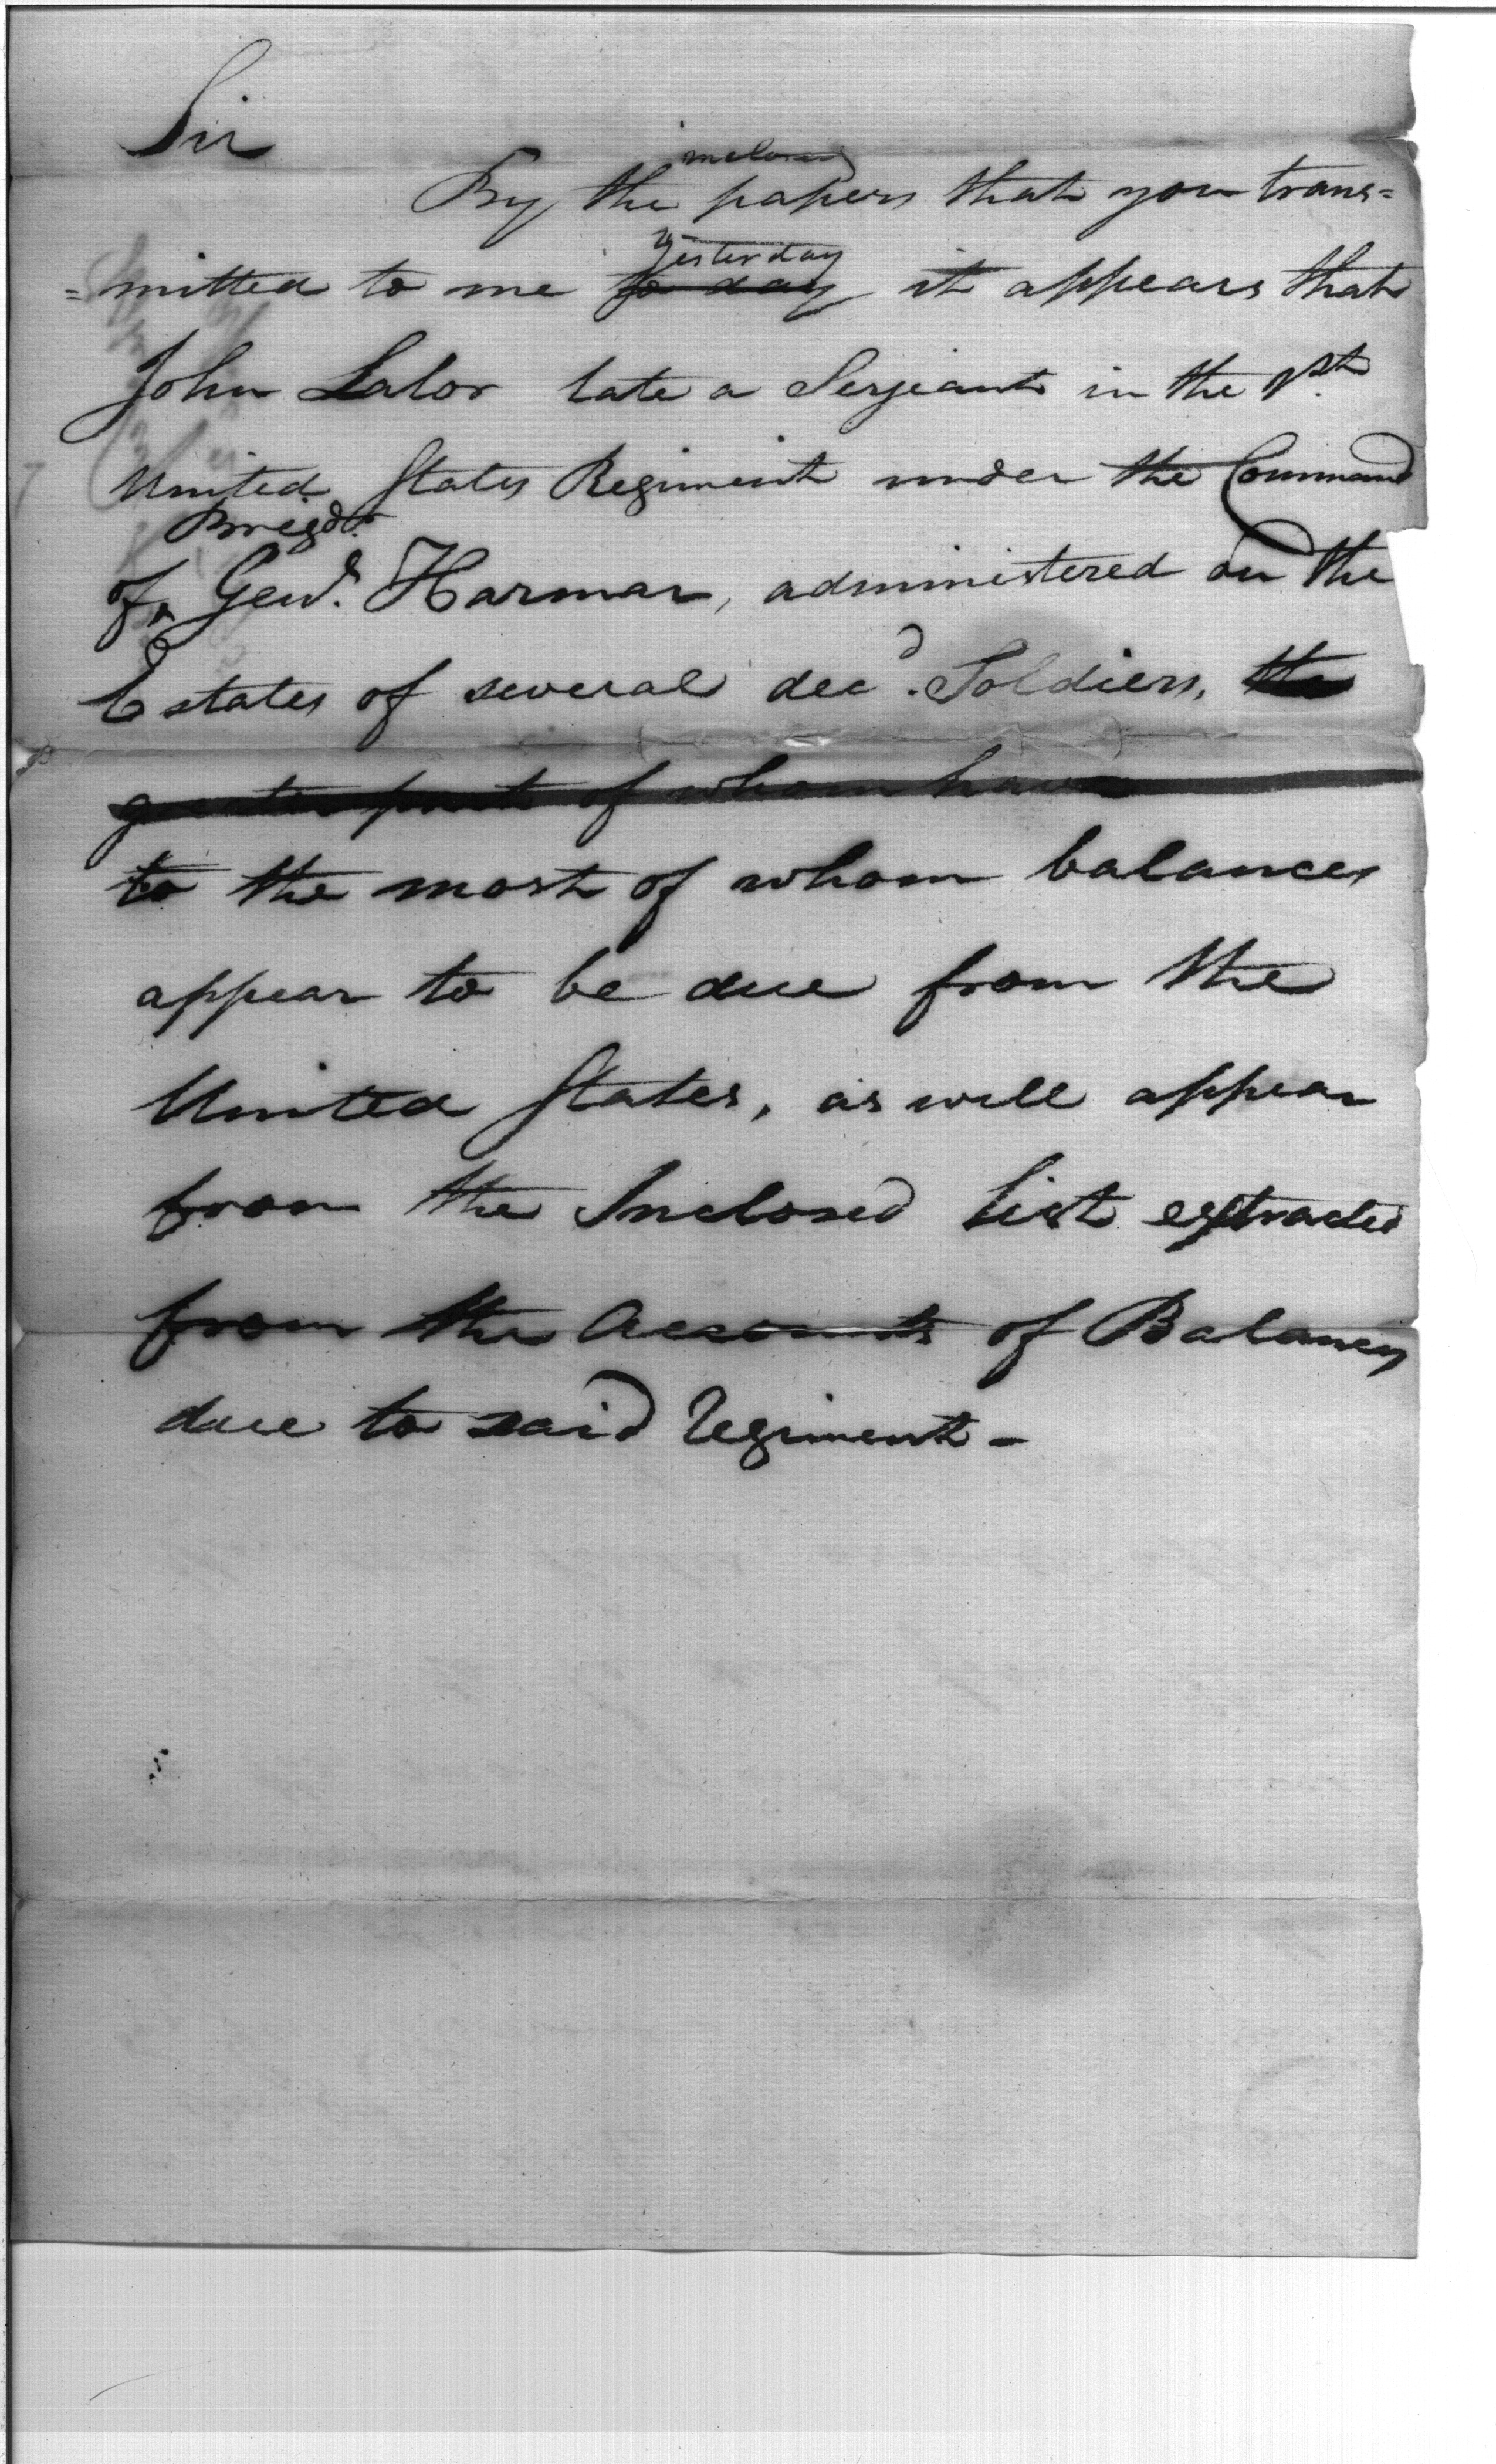 Sir
inclosed
By the papers that you trans=
yesterday
=mitted to me to day it appears that
John Lalor late a Serjeant in the 1st.
United States Regiment under the Command
Brigdr.
of Genl. Harmar, administered on the
Estates of several decd. Soldiers, the
greater part of whom have
to the most of whom balances
appear to be due from the
United States, as will appear
from the Inclosed list extracted
from the Accounts of Balances
due to said Regiment -